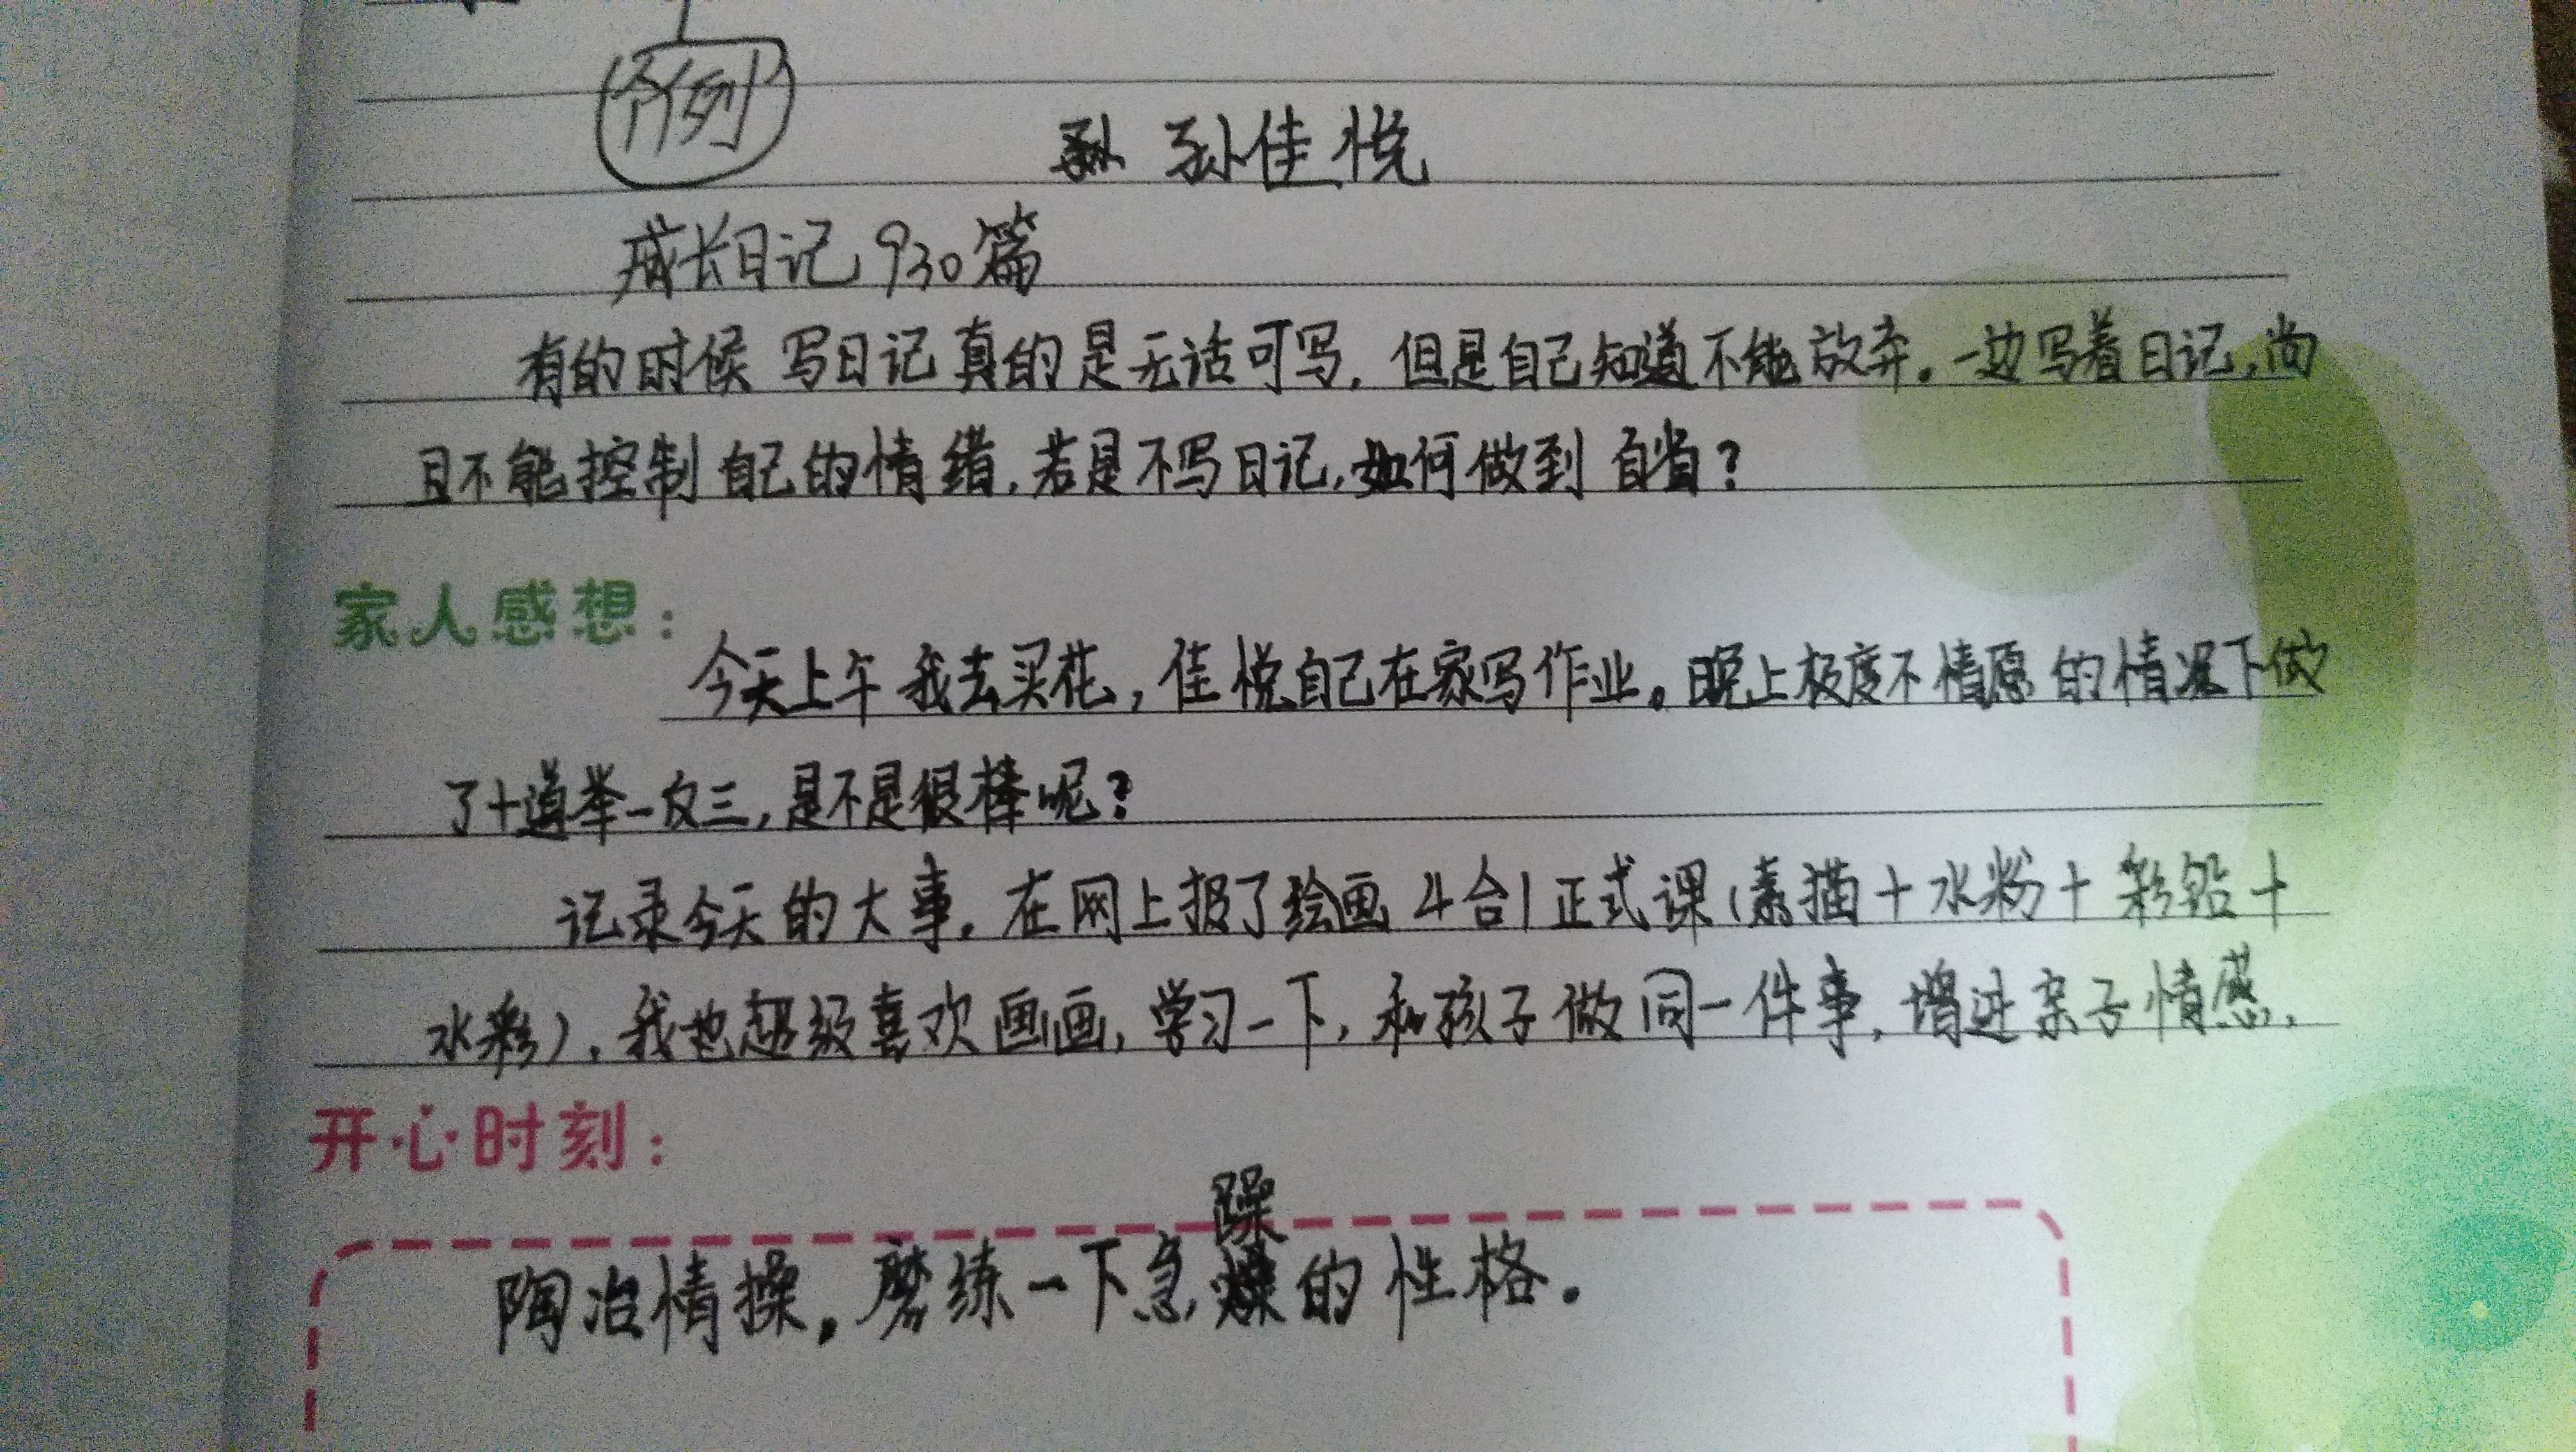 个例
孙 孙佳悦
成长日记930篇
有的时候写日记真的是无话可写，但是自己知道不能放弃。一边写着日记，尚
且不能控制自己的情绪，若是不写日记，如何做到自省？
家人感想：
今天上午我去买花，佳悦自己在家写作业。晚上极度不情愿的情况下做
了十道举一反三，是不是很棒呢？
记录今天的大事。在网上报了绘画4合1正式课（素描＋水粉＋彩铅＋
水彩）。我也超级喜欢画画，学习一下，和孩子做同一件事，增进亲子情感，
开心时刻：
躁
陶冶情操。磨练一下急燥的性格。